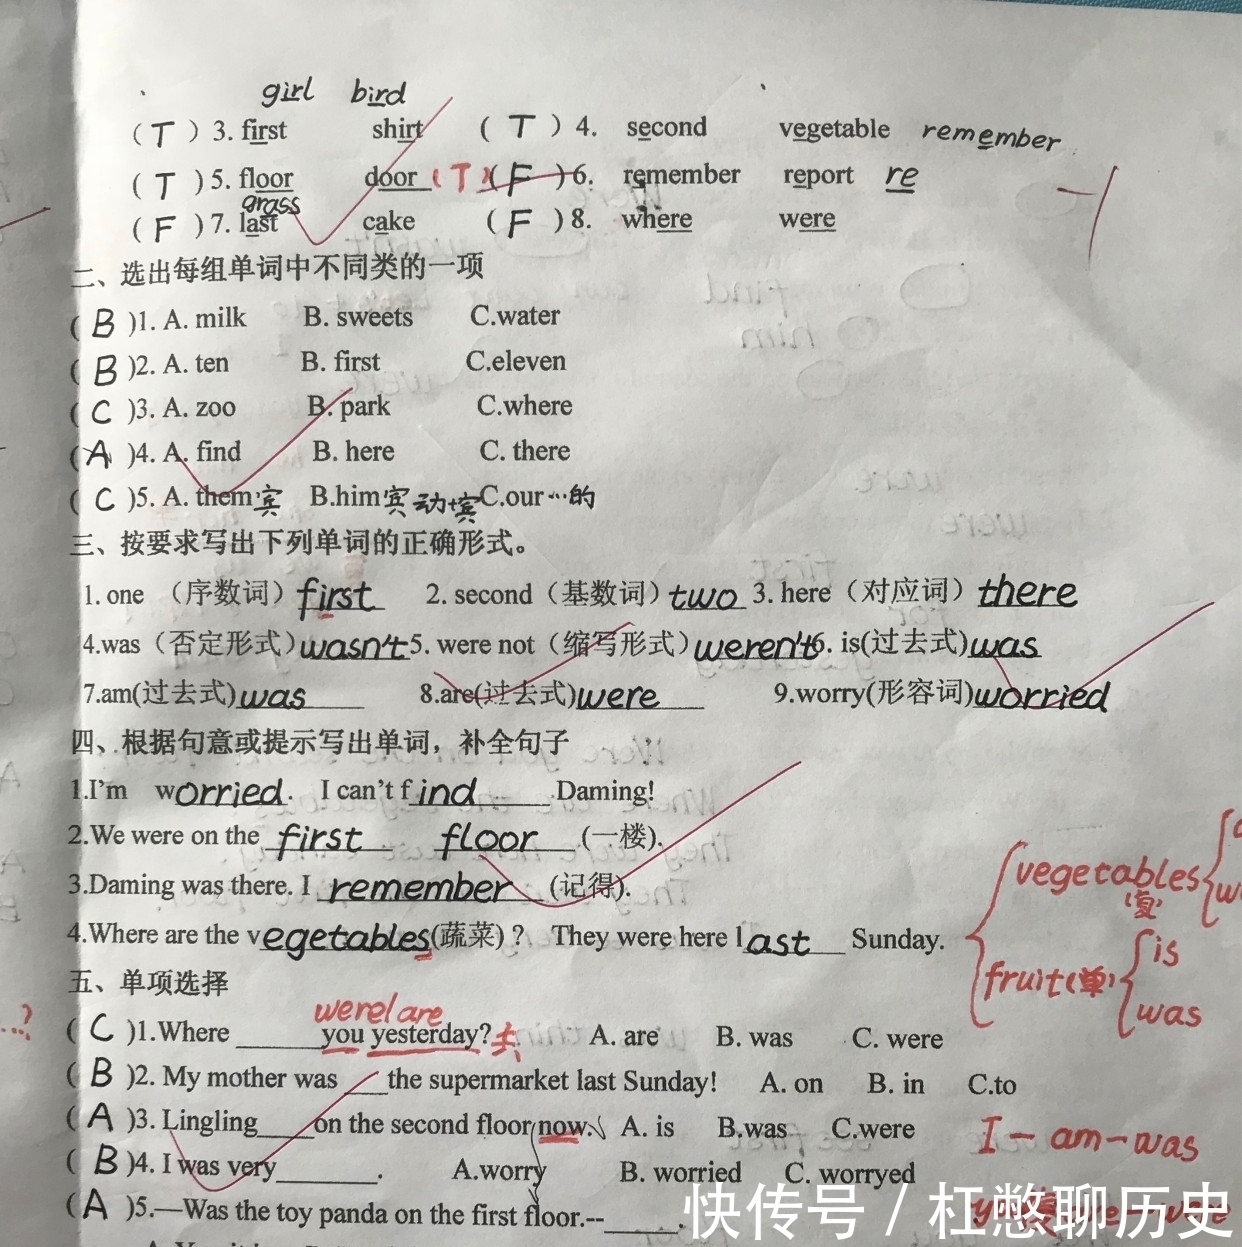 girl bird
( T ) 3. first shirt ( T ) 4. second vegetable remember
( T ) 5. floor door (T) ( F ) 6. remember report re
grass
( F ) 7. last cake ( F ) 8. where were
-1
二、选出每组单词中不同类的一项
( B )1. A. milk B. sweets C.water
( B )2. A. ten B. first C.eleven
( C )3. A. zoo B. park C.where
( A )4. A. find B. here C. there
( C )5. A. them宾 B.him宾 动+宾 C.our…的
三、按要求写出下列单词的正确形式。
1. one （序数词）first 2. second（基数词）two 3. here（对应词）there
4.was（否定形式）wasn't 5. were not（缩写形式）weren't 6. is(过去式)was
7.am(过去式)was 8.are(过去式)were 9.worry(形容词)worried
四、根据句意或提示写出单词，补全句子
1.I'm worried. I can't find Daming!
2.We were on the first floor (一楼).
3.Daming was there. I remember (记得).
4.Where are the vegetables(蔬菜)? They were here last Sunday.
vegetables
(复)
fruit(单) is
was
五、单项选择
were/are
...?
( C )1.Where ______you yesterday?去 A. are B. was C. were
( B )2. My mother was ___the supermarket last Sunday! A. on B. in C.to
( A )3. Lingling____on the second floor now. A. is B.was C.were
I - am - was
( B )4. I was very_______. A.worry B. worried C. worryed
( A )5.—Was the toy panda on the first floor.--_____.
快传号 / 杠憋聊历史